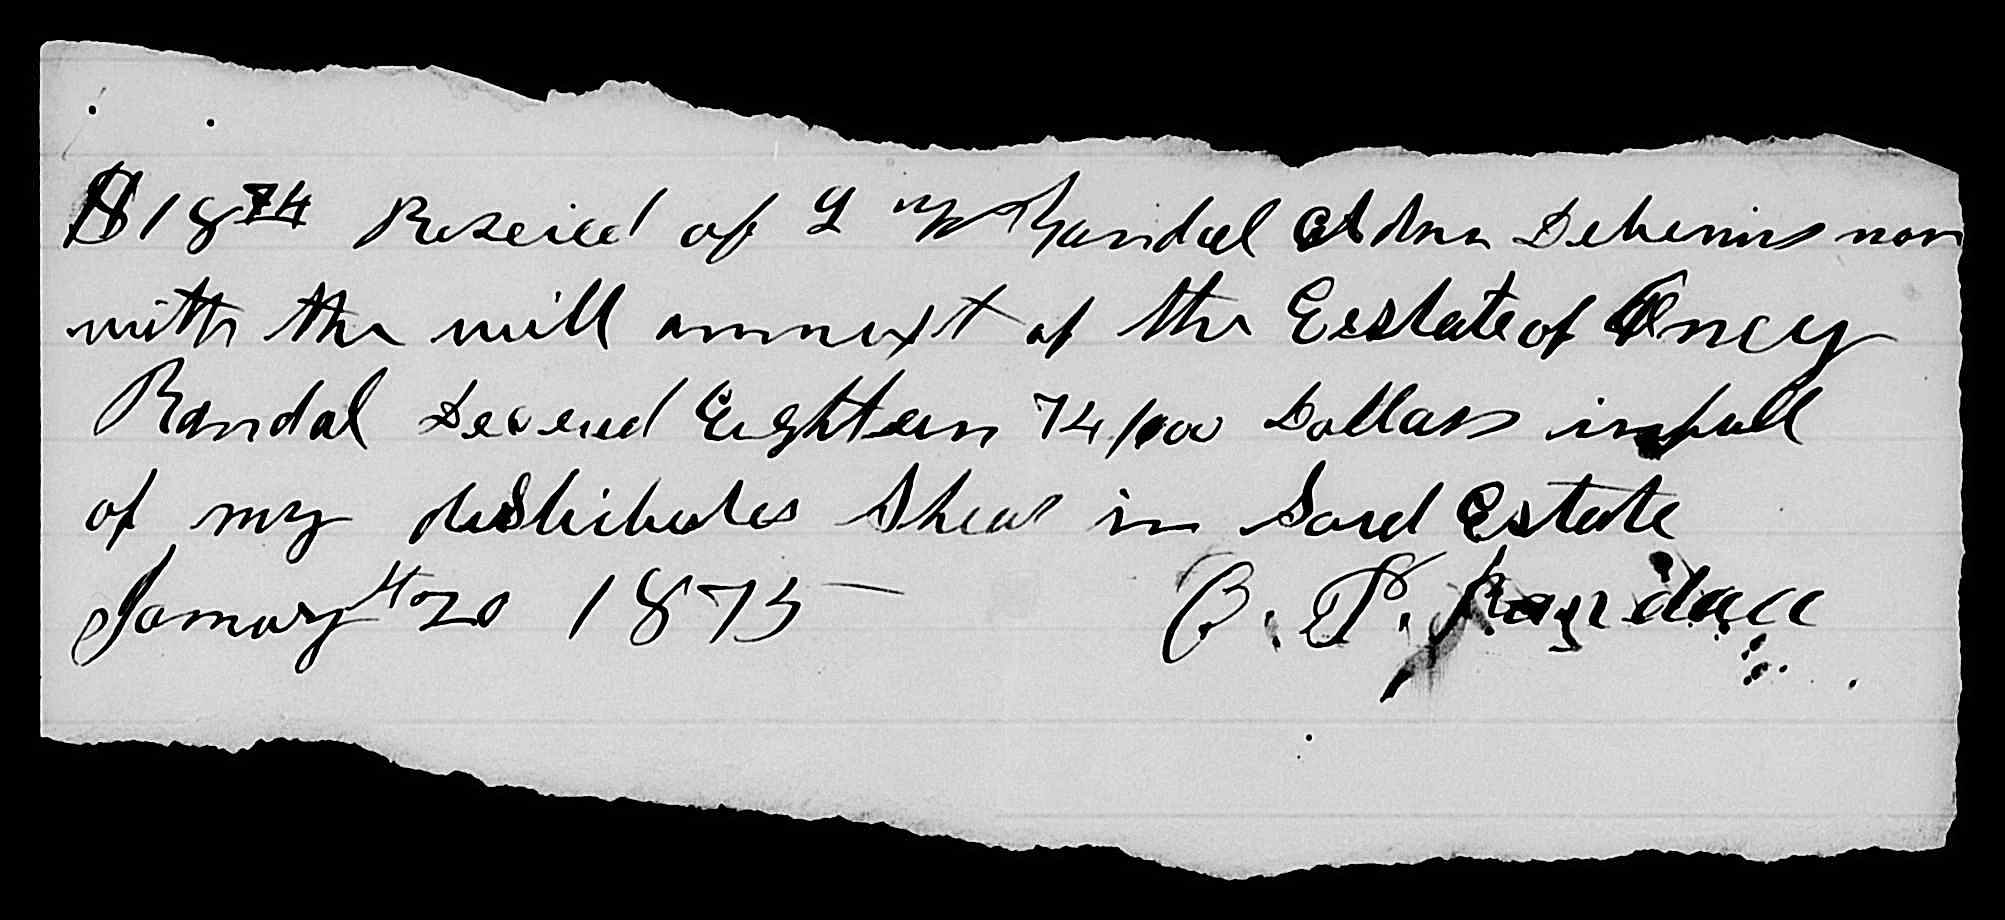 $18 74 Reseieed of L W Randal Adm Debenis non
with the will annext of the Eestate of Oncy
Randal Deceued Eighteen 74/100 Dollars in full
of my distributes Shear in Sard Estate
January 20 1875